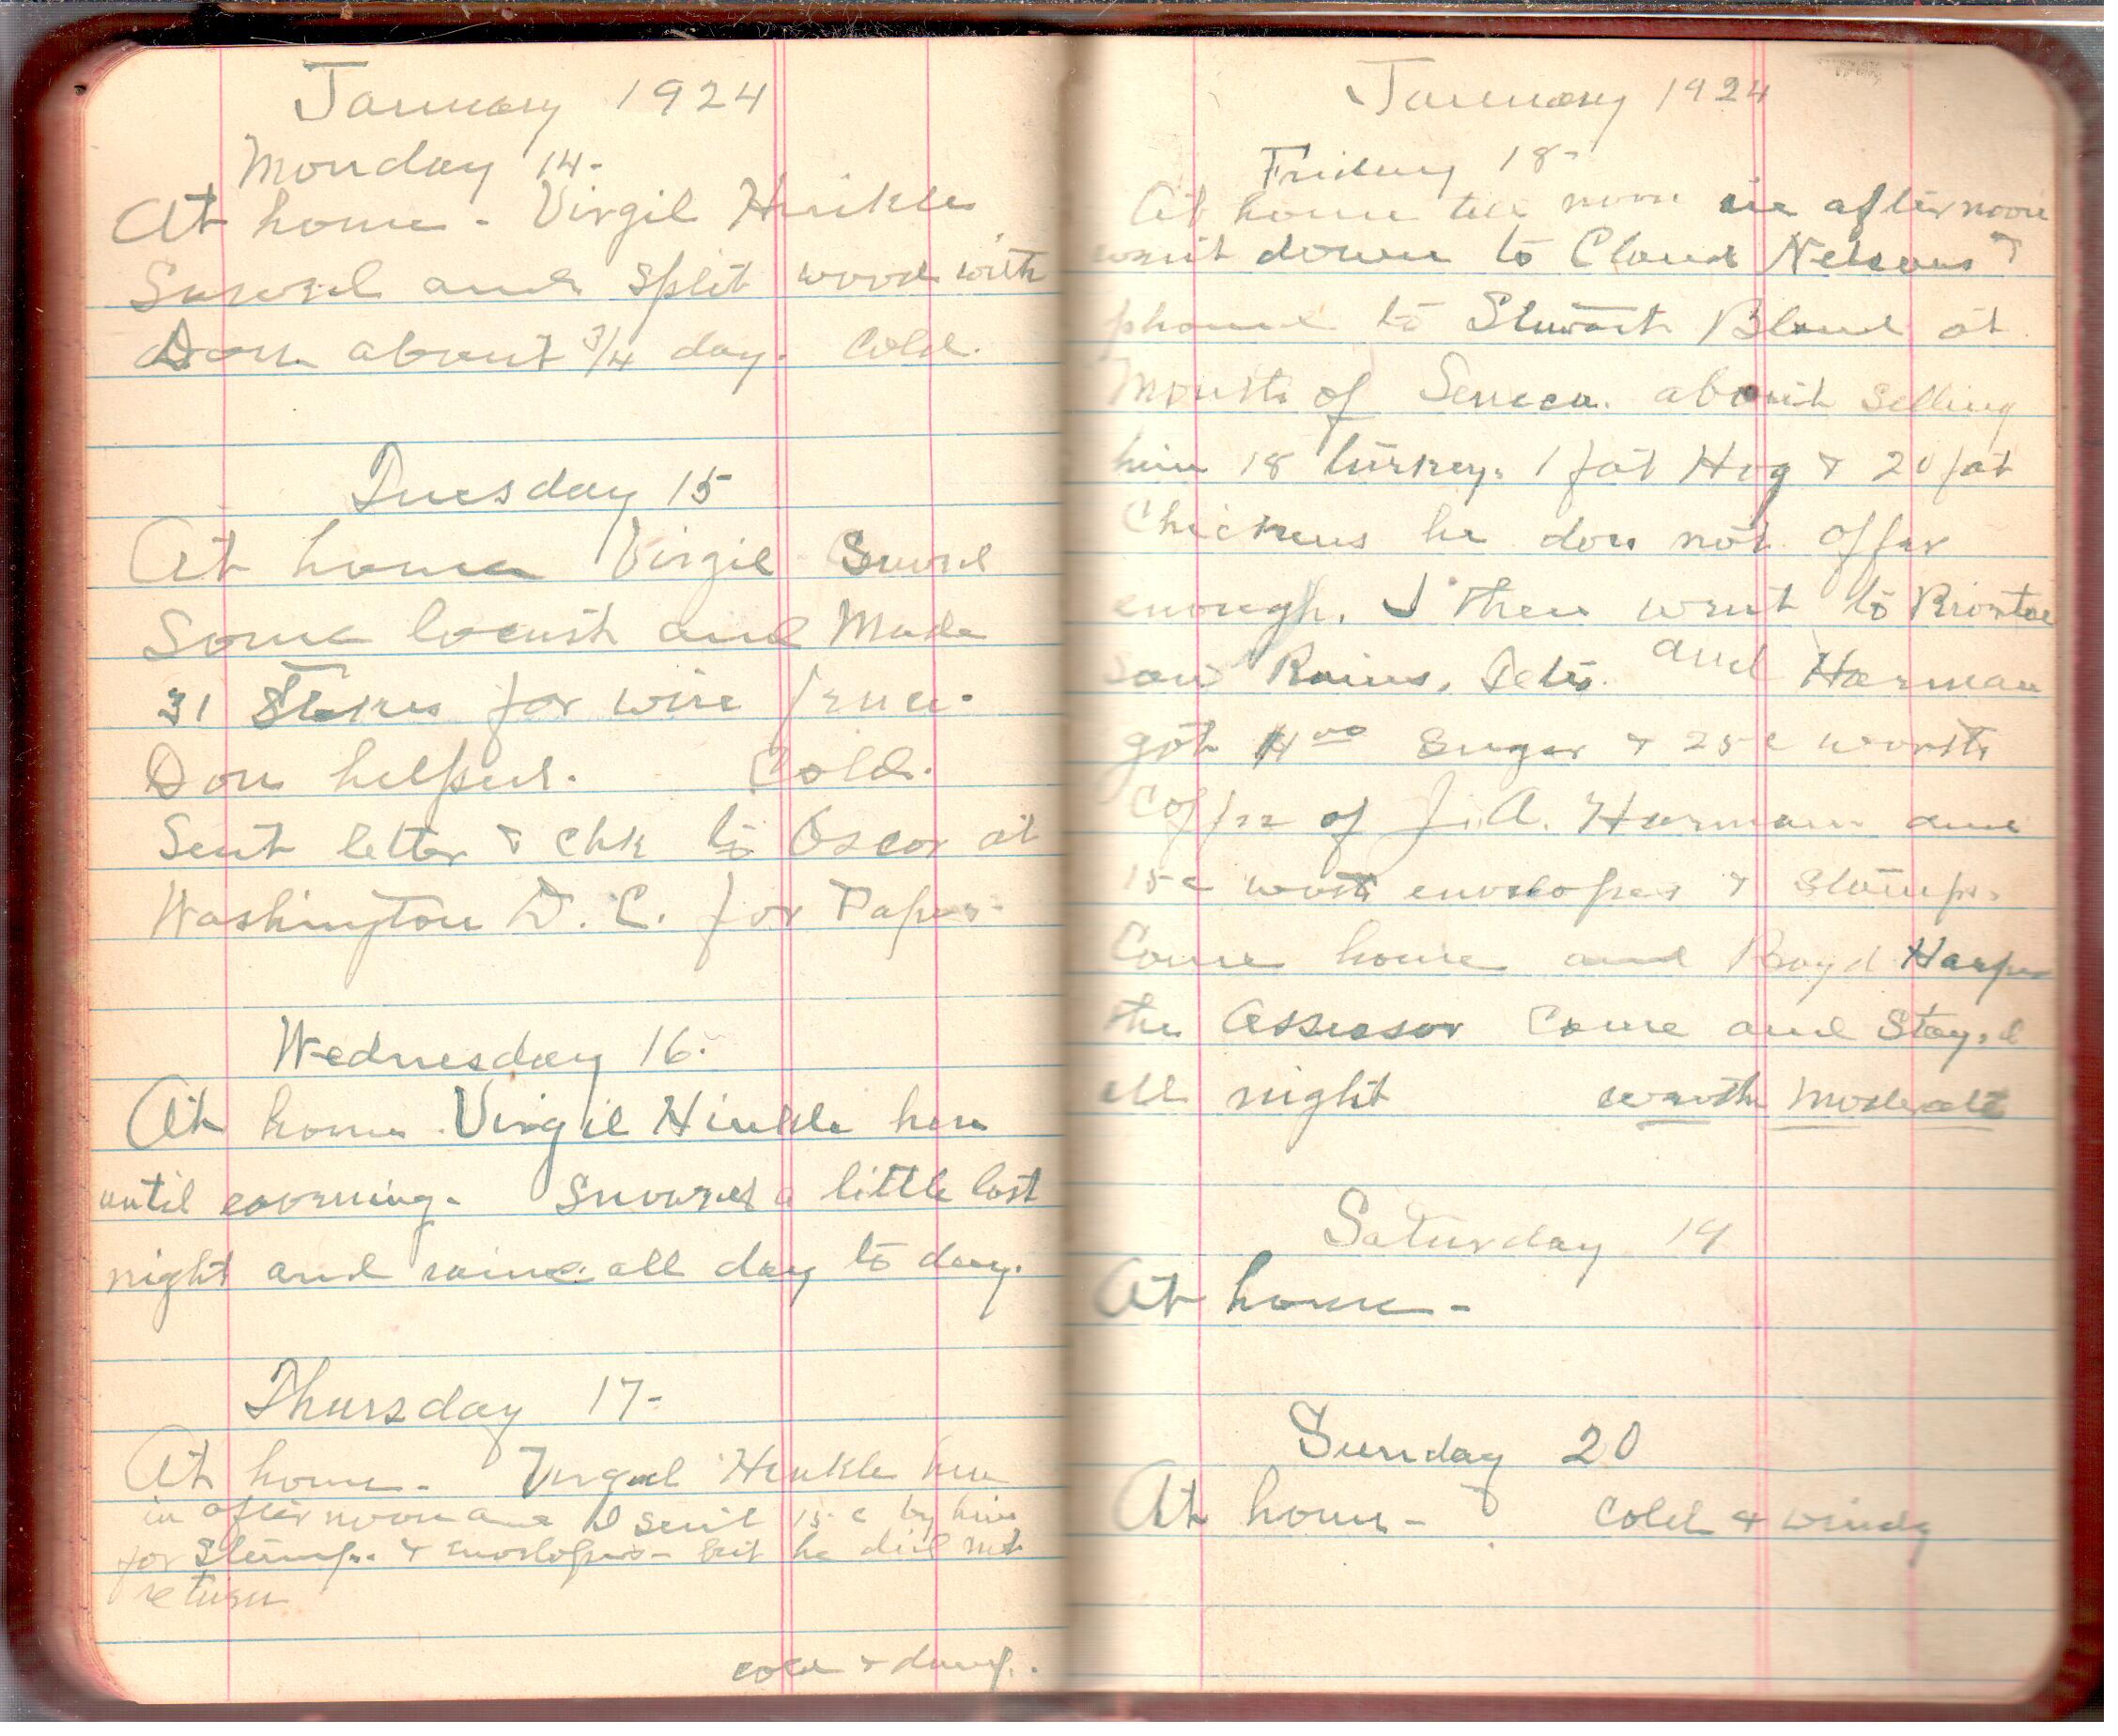 January 1924
Monday 14-
At home - Virgil Hinkle
Sawed and split wood with
Don about 3/4 day. Cold.
Tuesday 15
At home Virgil Sawed
Some locust and Made
31 Stakes for wire fence.
Don helped. Cold.
Sent letter & chk to Oscar at
Washington D.C. for Paper-
Wednesday 16.
At home. Virgil Hinkle here
until evening. Snowed a little last
night and rained all day to day.
Thursday 17-
At home. Virgil Hinkle here
in afternoon and I sent 15 c by him
for Stamps & envelopes - but he did not
return
cold & damp.
January 1924
Friday 18-
At home till noon in afternoon
went down to Claud Nelsons &
phoned to Stuart Bland at
Mouth of Seneca. about Selling
him 18 turkey. 1 fat Hog & 20 fat
Chickens he does not offer
enough. I then went to
saw Rains, and Harman
got 4 00 Sugar & 25 c worth
Coffee of J. A. Harman and
15 c worth envelopes & Stamps.
Come home and Boyd Harper
the Assessor Come and Stay,d
all night moderate
Saturday 19
At home -
Sunday 20
At home - Cold & windy